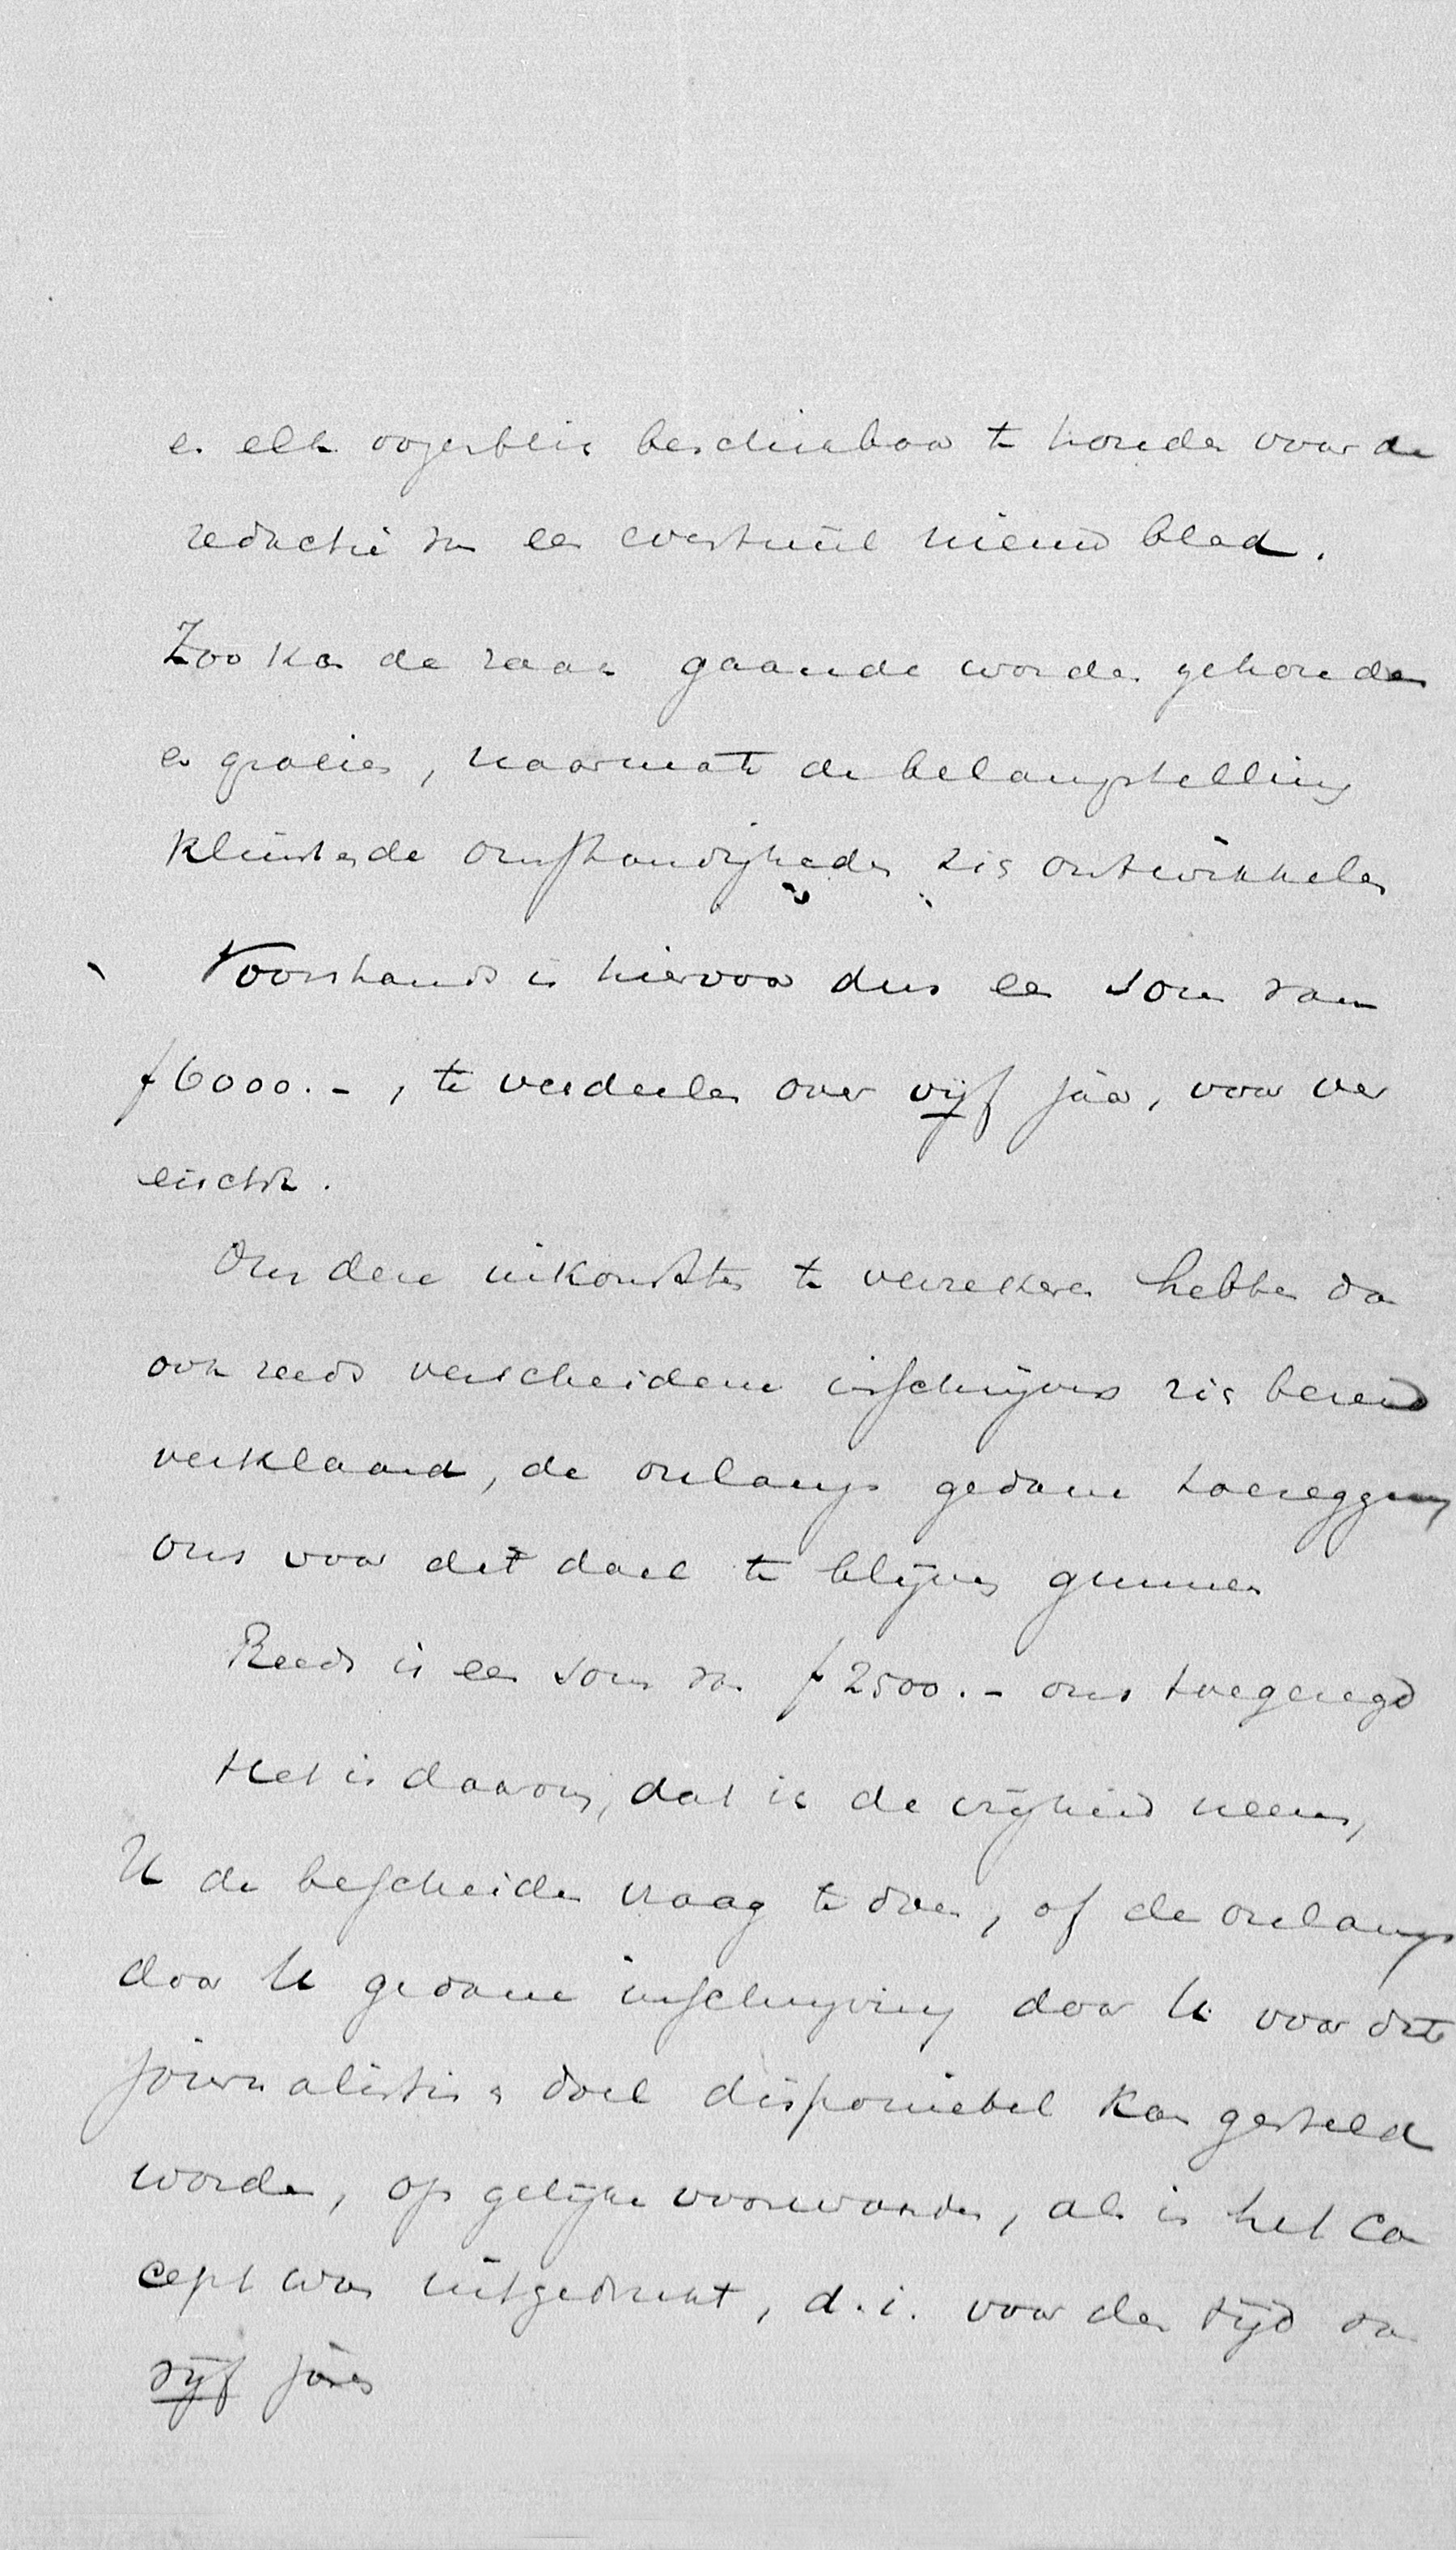 en elk oogenblik beschikbaar te houden voor de
redactie van een eventueel nieuw blad.
Zoo kan de zaak gaande worden gehouden
en groeien, naarmate de belangstelling
omstandigheden zich ontwikkelen
Voorshands is hiervoor dus een som van
f 6000.-, te verdeelen over vijf jaar, voor ver
eischt.
Om deze inkomsten te verzekeren hebben dan
ook reeds verscheidene inschrijvers zich bereid
verklaard, de onlangs gedane toezegging
ons voor dit doel te blijven gunnen
Reeds is een som van f 2500.- ons toegezegd
Het is daarom, dat ik de vrijheid neem,
U de bescheiden vraag te doen, of de onlangs
door U gedane inschrijving door U voor dit
journalistiek doel disponibel kan gesteld
worden, op gelijke voorwaarden, als in het con
cept was uitgedrukt, d.i. voor den tijd van
vijf jaren